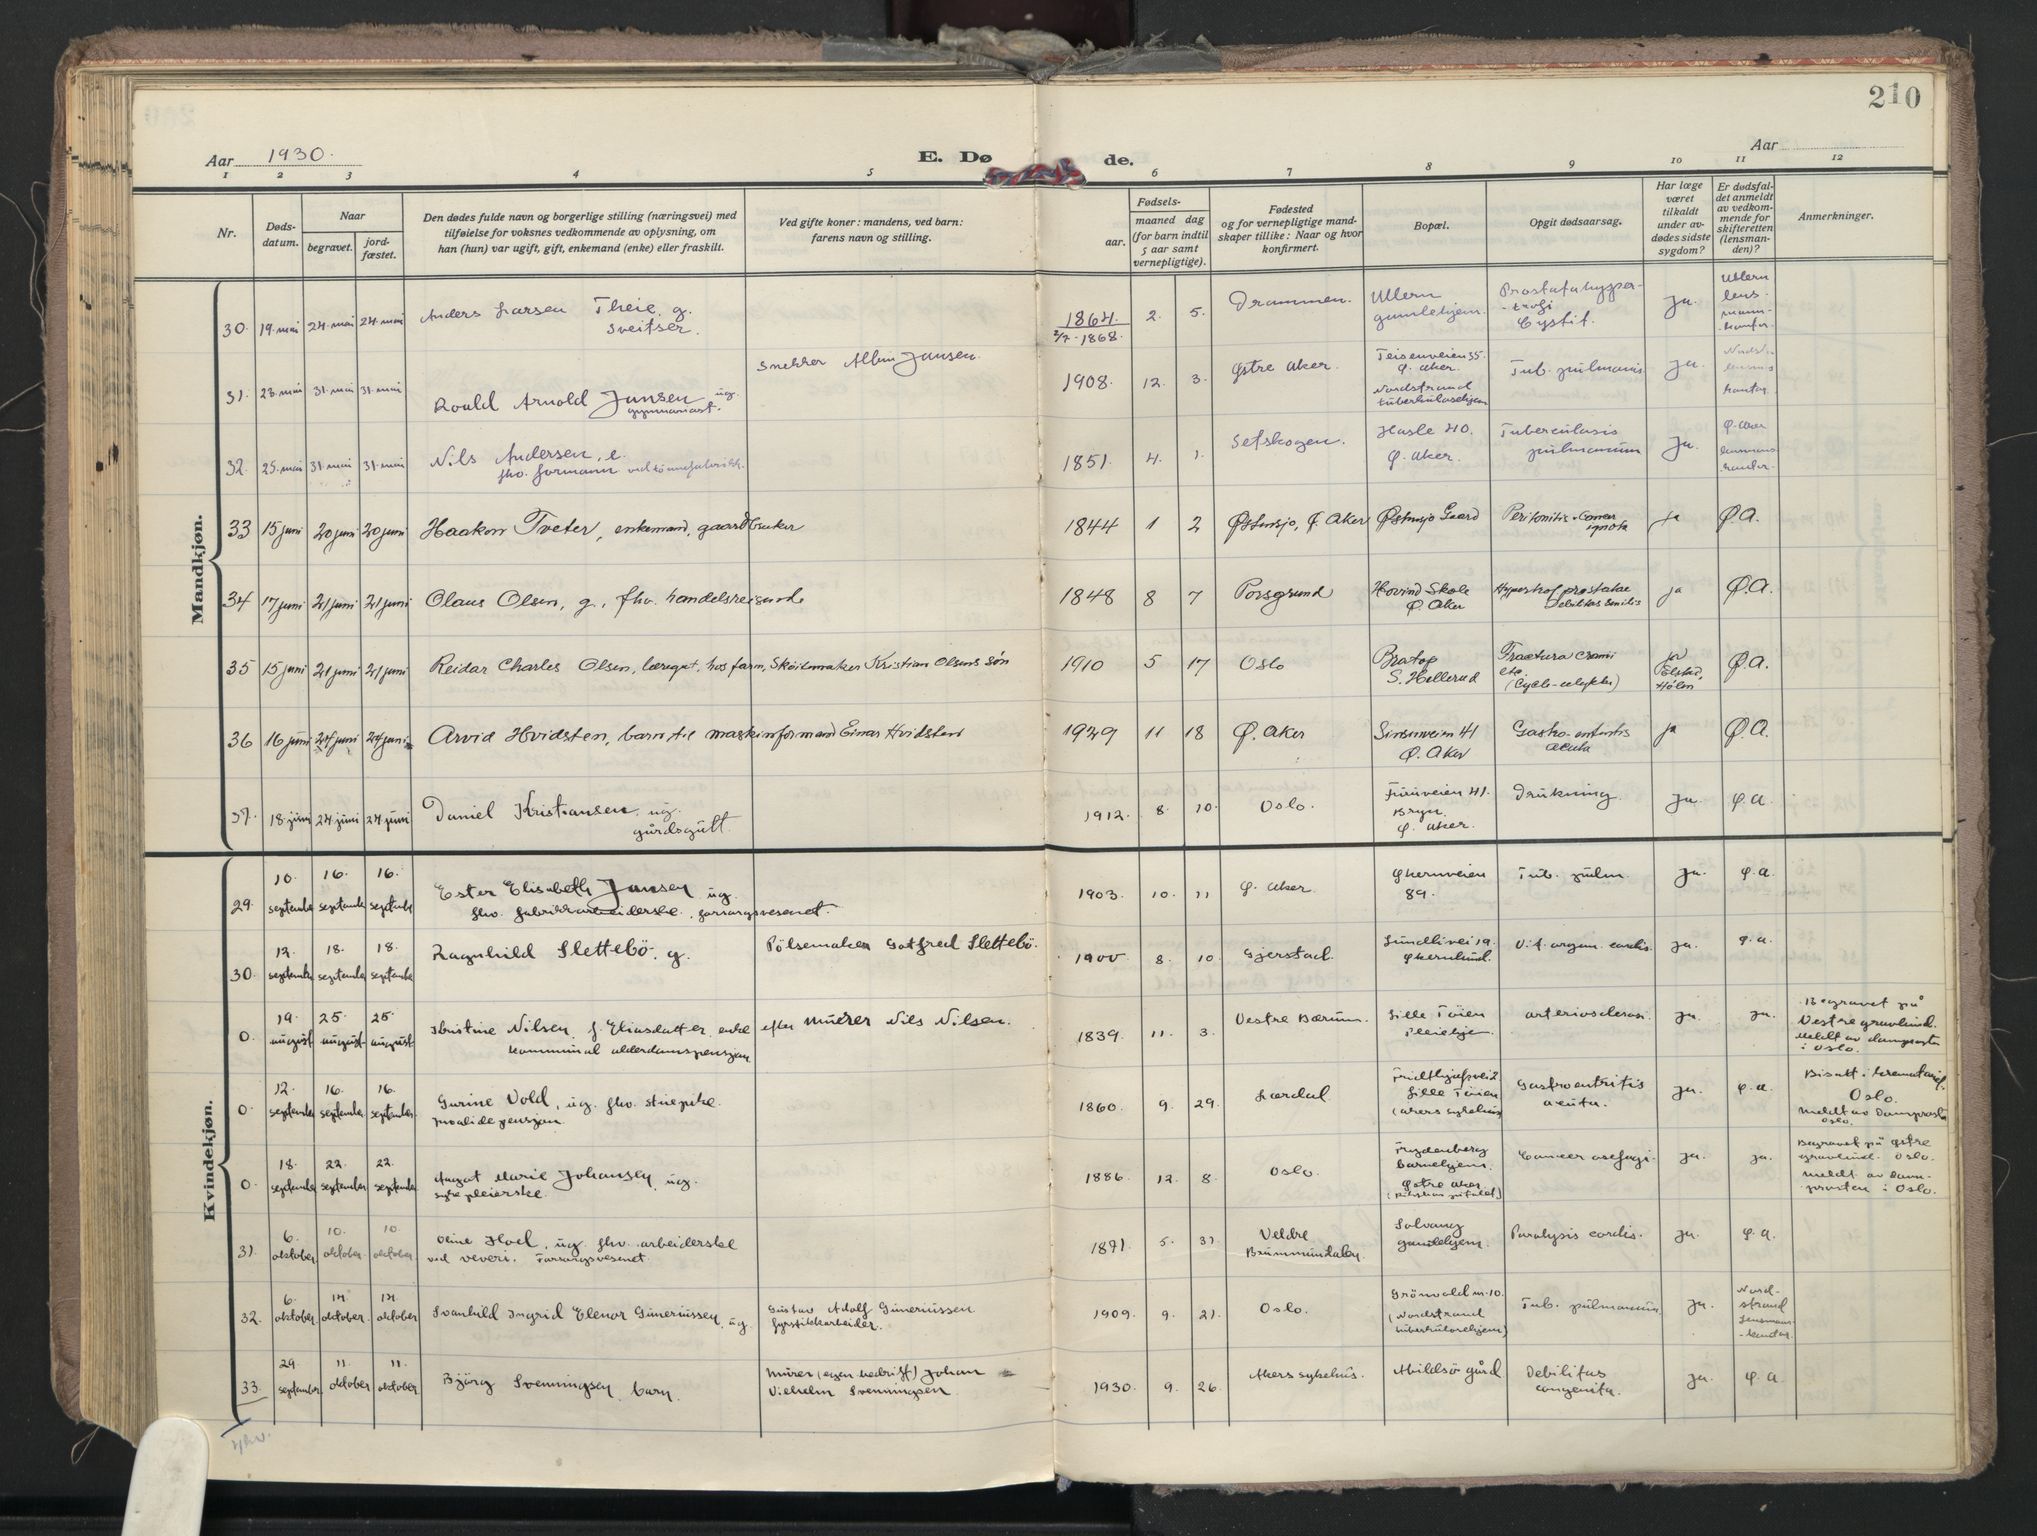 210
Aar 1930.
E. Døde.
Aar
1 2 3 4 5 6 7 8 9 10 11 12
Nr.
Døds-
datum.
Naar
begravet.
jord-
fæstet.
Den dødes fulde navn og borgerlige stilling (næringsvei) med
tilføielse for voksnes vedkommende av oplysning, om
han (hun) var ugift, gift, enkemand (enke) eller fraskilt.
Ved gifte koner: mandens, ved barn:
farens navn og stilling.
Fødsels-
aar.
maaned dag
(for barn indtil
5 aar samt
vernepligtige).
Fødested
og for vernepligtige mand-
skaper tillike: Naar og hvor
konfirmert.
Bopæl.
Opgit dødsaarsag.
Har læge
været
tilkaldt
under av-
dødes sidste
sygdom?
Er dødsfal-
det anmeldt
av vedkom-
mende for
skifteretten
(lensman-
den)?
Anmerkninger.
Mandkjøn.
30. 19. mai 24. mai 24. mai Anders Larsen Theie, g.
Sveitser.
1864. 2. 5. Drammen. Ullern
gamlehjem. Prostatahyper-
trofi
Cystit. Ja. Ullern
lens-
mann-
kontor.
2/7-1868.
31. 23. mai 31. mai 31. mai Roald Arnold Jansen ug.
gymnasiast.
Snekker Albin Jansen.
1908. 12. 3. Østre Aker. Teisenveien 35.
Ø. Aker.
Nordstrand
tuberkulosehjem Tub. pulmonis Ja.
kontor.
32. 25. mai 31. mai 31. mai Nils Andersen, e.
fhv. formann ved tønnefabrikk.
1851. 4. 1. Setskogen. Hasle 40.
Ø. Aker. Tuberculosis
pulmonum Ja. Ø. Aker
lensmans-
kontor.
33 15 juni 20 juni 20 juni Haakon Tveter, enkemand, gaardbruker
1844 1 2 Østensjø, Ø. Aker Østensjø Gaard Peritonitis ignota ja Ø.A.
34 17 juni 21 juni 21 juni Olaus Olsen, g., fhv. handelsreisende
1848 8 7 Porsgrund Hovind Skole
Ø. Aker Hypertrof. prostatae
Debilitas senilis ja Ø.A.
35 15 juni 21 juni 21 juni Reidar Charles Olsen, læregut, hos farm, Skøitemaker Kristian Olsens søn
1910 5 17 Oslo Bratop
S. Hellerud Fractura cranii
etc.
(Cycle-ulykke) ja
Holm Ø.A.
36 16 juni 24 juni 24 juni Arvid Hvidsten, barn til maskinformand Einar Hvidsten
1929 11 18 Ø. Aker Sinsenveien 41
Ø. Aker Gastro-enteritis
acuta ja Ø.A.
37. 18. juni 24 juni 24 juni Daniel Kristiansen, ug.
gårdsgutt.
1912. 8. 10. Oslo. Furuveien 41.
Bryn.
Ø. Aker. Drukning. Ja. Ø.A.
Kvindekjøn.
29. 10. september 16. september 16. september Ester Elisabeth Jansen ug.
fhv. fabrikkarbeiderske. forsorgsvesenet.
1903. 10. 11 Ø. Aker. Økernveien
89. Tub. pulm. Ja. Ø.A.
30. 12. september 18. september 18. september Ragnhild Slettebö, g. Pölsemaker Gotfred Slettebö.
1900. 8. 10. Gjerstad. Lundlivei 19.
Økernlund. V. t. organ. cordis. Ja. Ø.A.
0. 19. august 25. august 25. august Kristine Nilsen f. Eliasdatter enke efter murer Nils Nilsen.
kommunal alderdomspensjon
1839. 11. 3. Vestre Bærum. Lille Töien
pleiehjem. arteriosclerosis. Ja. Ja. Begravet på
Vestre gravlund.
Meldt av domprosten
i Oslo.
0. 12. september 16. september 16. september Gurine Vold, ug. fhv. strepke.
Invalidepensjon.
1860. 9. 29. Lærdal Fridthjofsvei 2
Lille Töien
(Akers sykehus) Gastroenteritis
acuta. Ja. Ø.A. Bisatt i krematoriet,
Oslo.
Meldt av Domprosten
Oslo.
0. 18. september 22. september 22. september August Marie Johansen, ug.
sykepleierske.
1886. 12. 8. Oslo. Frydenberg
barnehjem.
Østre Aker.
Cancer oesofagi. Ja. Ja. Begravet på Østre
gravlund. Oslo.
meldt av dom-
prosten i Oslo.
31. 6. oktober 10. oktober 10. oktober Oline Hoel, ug. fhv. arbeiderske
ved veveri. Forsorgsvesenet.
1871. 5. 31. Veldre
Brummundalen Solvang
gamlehjem. Paralysis cordis. Ja. Ø.A.
32. 6. oktober. 14. oktober. 14. oktober Svanhild Ingrid Elenor Gunerüssen, ug. Gustav Adolf Gunerüssen
fyrstikkarbeider.
1909. 9. 21. Oslo. Grönvold nr. 10.
(Nordstrand
tuberkulosehjem) Tub. pulmonum. Ja. Nord-
strand
lensmans-
kontor.
33. 29. september 11. oktober 11. oktober Björg Svenningsen barn. Murer (egen bedrift) Johan
Vilhelm Svenningsen.
1930. 9. 26. Akers sykehus. Abildsö gård Debilitas
congenita. Ja. Ø.A